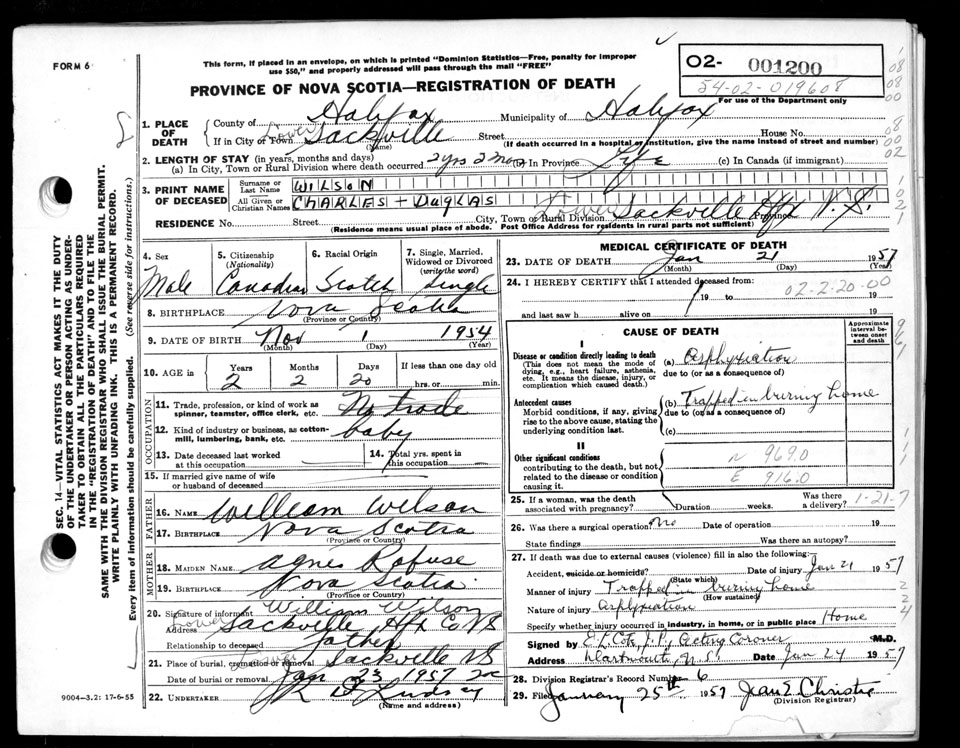 FORM 6
This form, if placed in an envelope, on which is printed "Dominion Statistics—Free, penalty for improper
use $50," and properly addressed will pass through the mail "FREE"
PROVINCE OF NOVA SCOTIA—REGISTRATION OF DEATH
02- 001200
54-02-019608
For use of the Department only
1. PLACE OF DEATH
County of Halifax Municipality of Halifax
If in City or Town Lower Sackville Street House No.
(Name) (If death occurred in a hospital or institution, give the name instead of street and number)
2. LENGTH OF STAY (in years, months and days)
(a) In City, Town or Rural Division where death occurred 2 yrs 2 mos (b) In Province Life (c) In Canada (if immigrant)
3. PRINT NAME OF DECEASED
Surname or Last Name WILSON
All Given or Christian Names CHARLES + DUGLAS
RESIDENCE No. Street City, Town or Rural Division Lower Sackville Hfx N.S. Province
(Residence means usual place of abode. Post Office Address for residents in rural parts not sufficient)
4. Sex Male
5. Citizenship (Nationality) Canadian
6. Racial Origin Scotch
7. Single, Married, Widowed or Divorced (write the word) Single
8. BIRTHPLACE Nova Scotia
(Province or Country)
9. DATE OF BIRTH Nov 1 1954
(Month) (Day) (Year)
10. AGE in Years 2 Months 2 Days 20 If less than one day old hrs. or min.
OCCUPATION
11. Trade, profession, or kind of work as spinner, teamster, office clerk, etc. No trade
12. Kind of industry or business, as cotton-mill, lumbering, bank, etc. baby
13. Date deceased last worked at this occupation
14. Total yrs. spent in this occupation
15. If married give name of wife or husband of deceased
FATHER
16. NAME William Wilson
17. BIRTHPLACE Nova Scotia
(Province or Country)
MOTHER
18. MAIDEN NAME Agnes Rafuse
19. BIRTHPLACE Nova Scotia
(Province or Country)
20. Signature of informant William Wilson
Address Lower Sackville Hfx Co NS
Relationship to deceased father
21. Place of burial, cremation or removal Lower Sackville NS
Date of burial or removal Jan 23 1957
22. UNDERTAKER
(Name and address)
MEDICAL CERTIFICATE OF DEATH
23. DATE OF DEATH Jan 21 1957
(Month) (Day) (Year)
24. I HEREBY CERTIFY that I attended deceased from
19 to 02-2-20-00 19
and last saw h alive on 19
CAUSE OF DEATH
Approximate interval between onset and death
I
Disease or condition directly leading to death
(This does not mean the mode of dying, e.g., heart failure, asthenia, etc. It means the disease, injury, or complication which caused death.)
(a) Asphyxiation
due to (or as a consequence of)
Antecedent causes
Morbid conditions, if any, giving rise to the above cause, stating the underlying condition last.
(b) Trapped in burning home
due to (or as a consequence of)
(c)
II
Other significant conditions
contributing to the death, but not related to the disease or condition causing it.
N 969.0
E 916.0
25. If a woman, was the death associated with pregnancy? Duration weeks. Was there a delivery?
1-21-7
26. Was there a surgical operation? no Date of operation 19
State findings Was there an autopsy?
27. If death was due to external causes (violence) fill in also the following:
Accident, suicide or homicide? Date of injury Jan 21 1957
(State which)
Manner of injury Trapped in burning home
(How sustained)
Nature of injury Asphyxiation
Specify whether injury occurred in industry, in home, or in public place Home
Signed by Acting Coroner M.D.
Address Dartmouth, N.S. Date Jan 24 1957
28. Division Registrar's Record Number 6
29. Filed January 25th 1957 Jean E. Christie
(Division Registrar)
SEC. 14—VITAL STATISTICS ACT MAKES IT THE DUTY
OF THE UNDERTAKER OR PERSON ACTING AS UNDER-
TAKER TO OBTAIN ALL THE PARTICULARS REQUIRED
IN THE "REGISTRATION OF DEATH" AND TO FILE THE
SAME WITH THE DIVISION REGISTRAR WHO SHALL ISSUE THE BURIAL PERMIT.
WRITE PLAINLY WITH UNFADING INK. THIS IS A PERMANENT RECORD.
Every item of information should be carefully supplied. (See reverse side for instructions.)
9004-3.2: 17-6-55